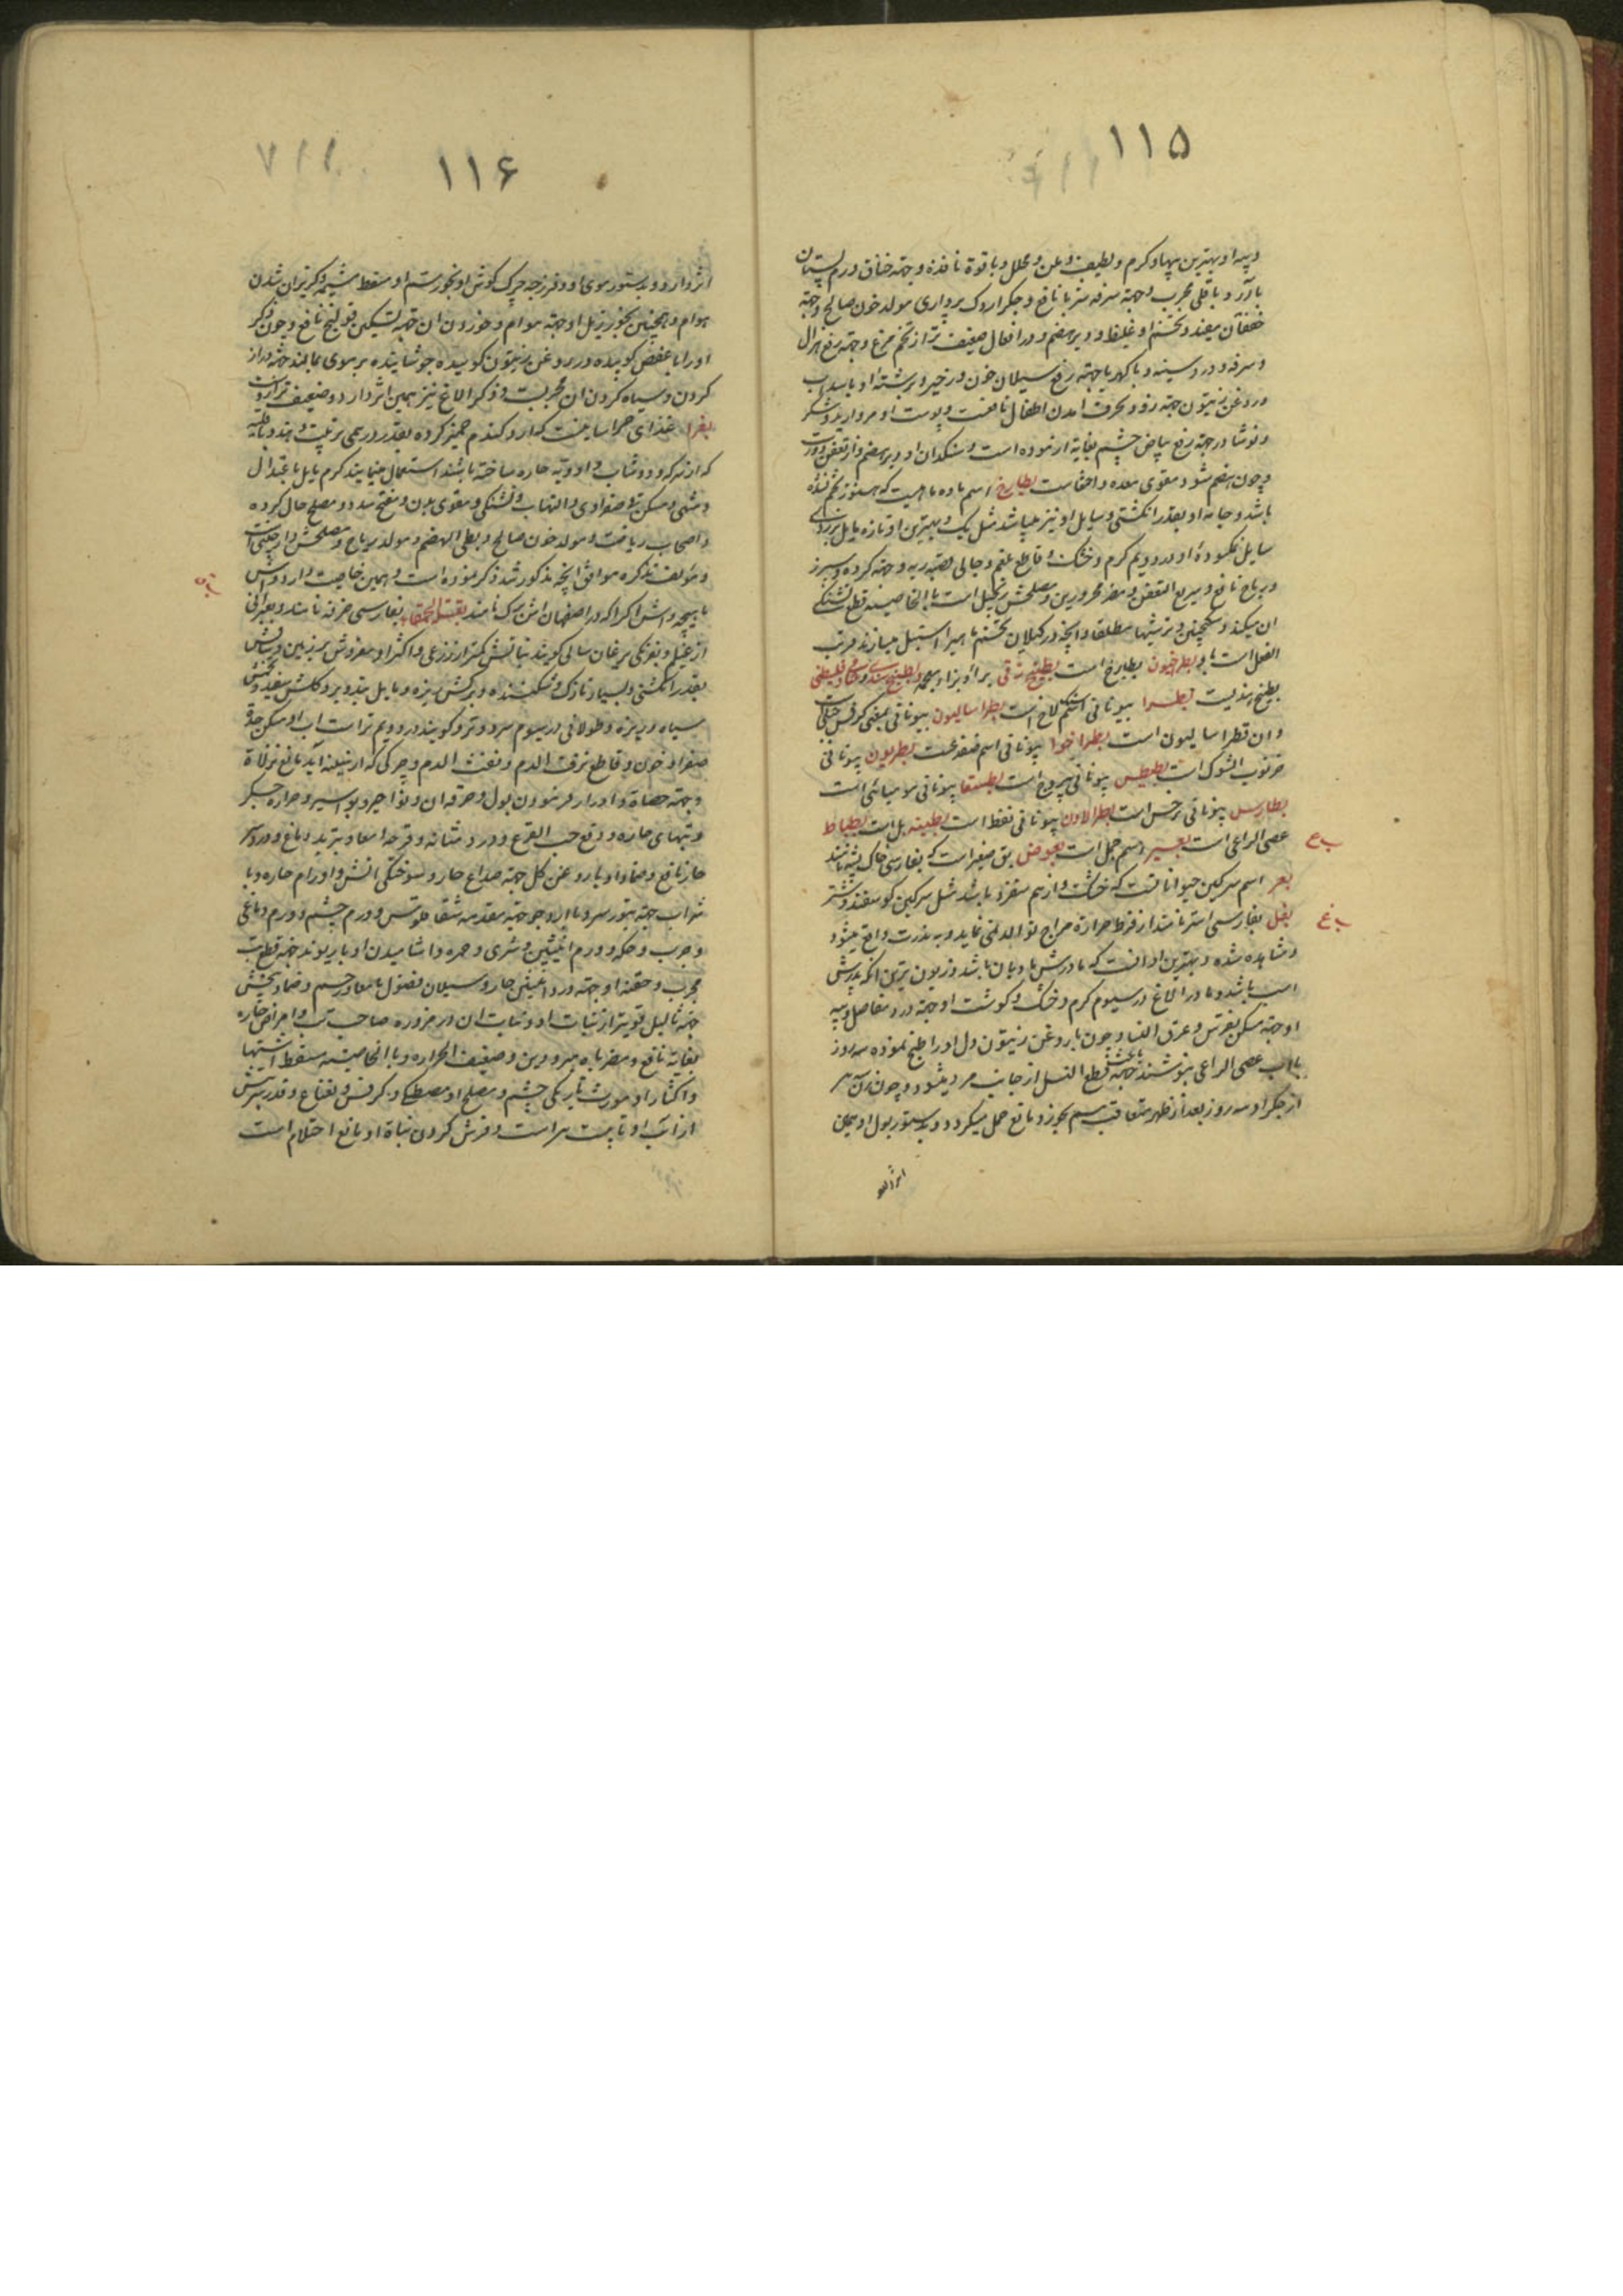 ١١۵
و پیه او بهترین پیها و گرم و لطیف و ملین و محلل و با قوة نافذه و جهة خناق و ورم پستان
با آرد باقلی مجرب و جهة سرفه مزمنه نافع و جگر اردک پرواری مولد خون صالح و جهة
خفقان مفید و تخم او غلیظ و دیر هضم و در افعال ضعیف تر از تخم مرغ و جهة رفع هزال
و سرفه و درد سینه و با کهربا جهة رفع سیلان خون و زحیر و برشته او با سداب
و روغن زیتون جهة زود بحرف آمدن اطفال نافعست و پوست او مروارید و شکر
و نوشادر جهة رفع بیاض چشم بغایة آزموده است و سنگدان او دیر هضم و از تعفن دورست
و چون هضم شود مقوی معده و احشاست بطارخ اسم ماده ماهیست که هنوز تخم نشده
باشد و خانه او بقدر انگشتی و مایل او نیز میباشد مثل یک و بهترین او تازه مایل بزردی
مایل نمکسوده او در دویم گرم و خشک و قاطع بلغم و جالی قصبه ریه و جهة گرده و سپرز
و ریاح نافع و سریع التعفن و مضر محرورین و مصلحش زنجبیل است بالخاصیه قطع تشنگی
آن میکند و سکنجبین و ترشیها مطلقا و آنچه در گیلان تخم ماهیرا اشپیل میسازند قریب
الفعل است باو بطرخیون بطارخ است بطیخ زقی برا و بزاء معجمه و بطیخ هندی و شامی و فلسطینی
بطیخ هندیست بطسرا بیونانی اشکلاخ است بطراسالیون بیونانی بمعنی کرفس جبلیست
و آن فطراسالیون است بطراخوا بیونانی اسم ضفدعست بطریون بیونانی
خرنوب الشوک است بطیطس بیونانی بیروح است بطسقا بیونانی مومیائی است
بطارس بیونانی سرخس است بطرالاون بیونانی نفط است بطینه بل است بطباط
عصی الراعی است بعیر اسم جمل است بعوض بق صغیر است که بفارسی خاک پشه نامند
ب ع
بعر اسم سرگین حیواناتست که خشک و از هم متفرق باشد مثل سرگین گوسفند و شتر
ب غ
بغل بفارسی استر نامند از فرط حرارة مزاج توالد نمی نماید و به ندرت واقع میشود
و مشاهده شده و بهترین او آنست که مادرش مادیان باشد و زبون ترین آنکه پدرش
اسب باشد و مادر الاغ در سیوم گرم و خشک و گوشت او جهة درد مفاصل و پیه
او جهة مسکن نقرس و عرق النسا و چون با روغن زیتون دل او را طبخ نموده سه روز
با آب عصی الراعی بنوشند باعث قطع النسل از جانب مرد میشود و چون زن هر
از جگر او سه روز بعد از طهر متعاقب هم بخورد مانع حمل میگردد و بدستور بول او همین
اثر دارد
١١۶
اثر دارد و بدستور موی او و فرزجه چرک گوش او و بخور سم او مسقط مشیمه و گریزان شدن
هوام و همچنین بخور زبل او جهة هوام و خوردن آن جهة تسکین قولنج نافع و چون ذکر
او را با عفص کوبیده در روغن زیتون کوبیده جوشانیده بر موی بمالند جهة دراز
کردن و سیاه کردن آن مجربست و ذکر الاغ نیز همین اثر دارد و ضعیف تر از اوست
بغرا غذای خراسانیست که آرد گندم خمیر کرده بقدر درهمی ترتیب دهند و با قلیه
که از سرکه و دوشاب و ادویه حاره ساخته باشند استعمال مینمایند گرم مایل باعتدال
و مشهی و مسکن قی صفراوی و التهاب و تشنگی و مقوی بدن و مفتح سدد و مصلح حال گرده
و اصحاب ریاضت و مولد خون صالح و بطی الهضم و مولد ریاح و مصلحش دارچینی است
و مؤلف تذکره موافق آنچه مذکور شد ذکر نموده است و همین خاصیت دارد آش
ب ق
ماهیچه و آش اکرا که در اصفهان آش برک نامند بقلة الحمقاء بفارسی خرفه نامند و بعراقی
از غیلم و بفرنگی برغان سالی گویند نباتش کمتر از زرعی و اکثر او مفروش بر زمین و ساقش
بقدر انگشتی و بسیار نازک و شکننده و برگش ریزه و مایل بتدویر و گلش سفید و تخمش
سیاه و ریزه و طولانی در سیوم سرد و تر و گویند در دویم تر است آب او مسکن حدة
صفرا و خون و قاطع نزف الدم و نفث الدم و چرکی که از سینه آید مانع نزلاة
و جهة حصاة و ادرار فرمودن بول و حرقة آن و نواحیر و بواسیر و حرارة جگر
و تبهای حاره و دفع حب القرع و درد مثانه و قرحه امعا و تبرید دماغ و درد سر
حار نافع و ضماد او با روغن گل جهة صداع حار و سوختگی آتش و اورام حاره و با
شراب جهة بثور سر و با آرد جو جهة مقدمه شقاقلوس و ورم چشم و ورم دماغی
و جرب و حکه و ورم انثیین و شری و حمره و آشامیدن او با ریوند جهة قطع تب
مجرب و حقنه او جهة درد انثیین حار و سیلان فضول بامعا و رحم و ضماد تخمش
جهة ثآلیل قویتر از نبات او و نبات آن در مزوره صاحب تب و امراض حاره
بغایة نافع و مضر باه مبرودین و ضعیف الحراره و بالخاصیه مسقط اشتها
و اکثار او مورث تاریکی چشم و مصلح او مصطکی و کرفس و نعناع و قدر شربتش
از آب او تا بیست درم است و فرش کردن نباة او مانع احتلام است